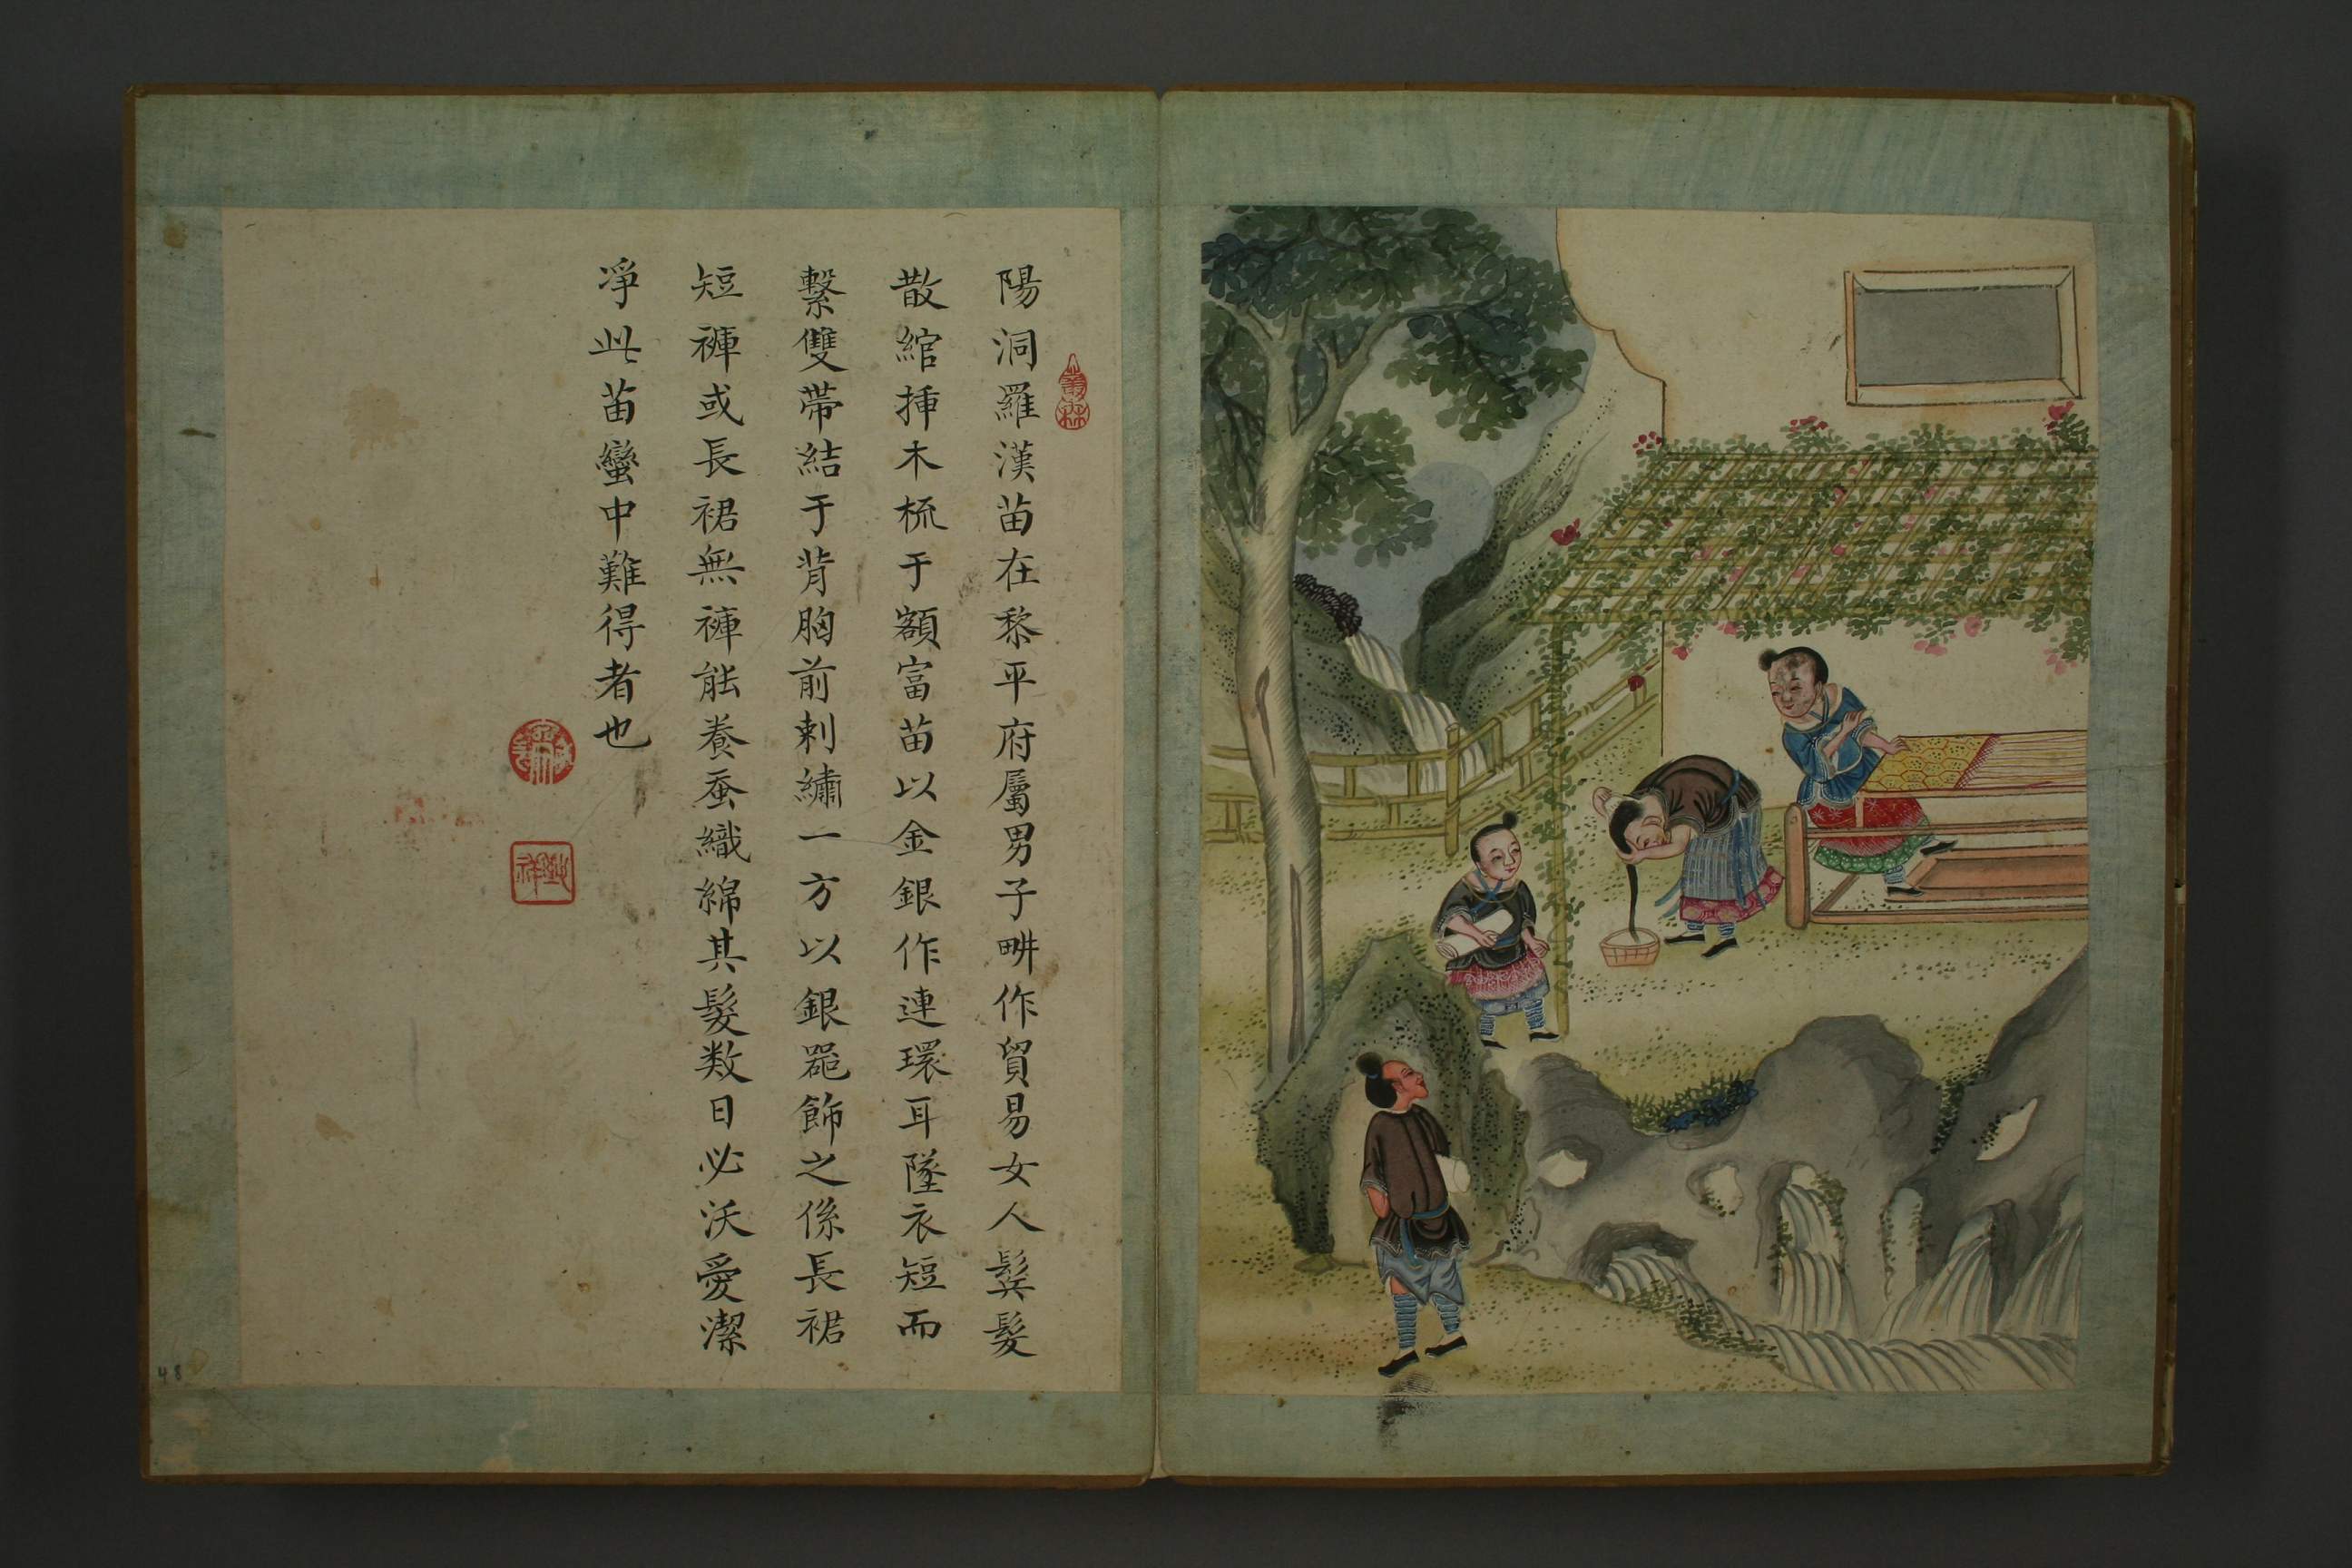 陽洞羅漢苗在黎平府屬男子畊作貿易女人鬓髮
散綰揷木梳于額富苗以金銀作連環耳墜衣短而
繫雙帶結于背胸前刺繡一方以銀器飾之係長裙
短褲或長裙無褲能養蚕織綿其髮数日必沃愛潔
凈此苗蠻中難得者也
48